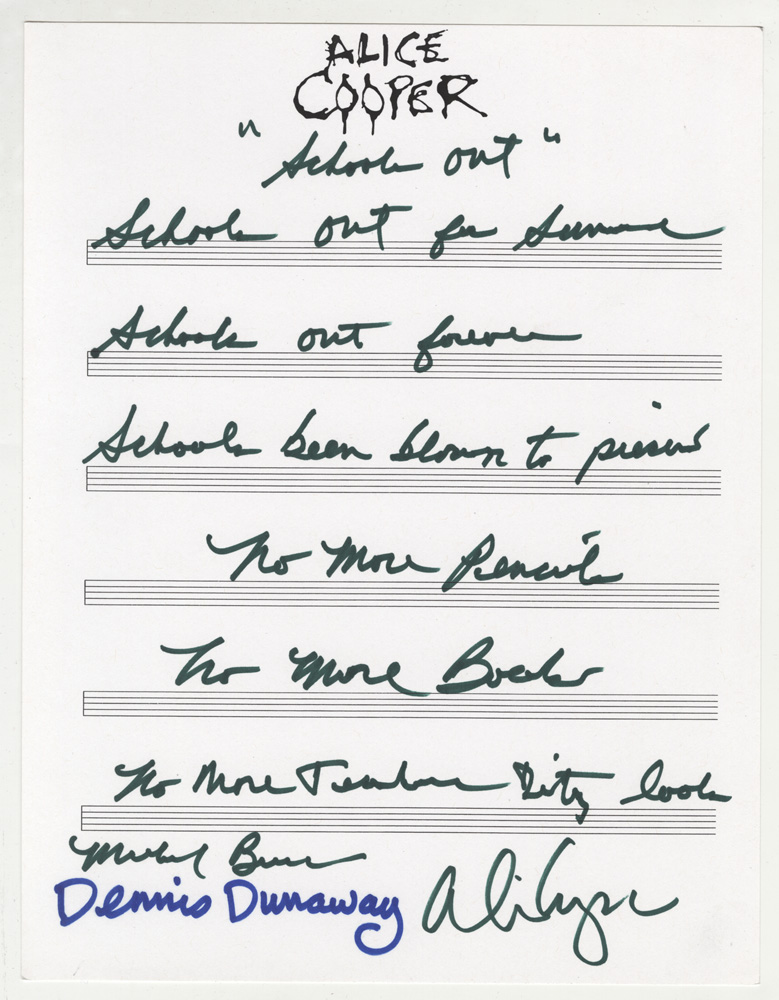 ALICE
COOPER
"Schools out"
Schools out for Summer
Schools out forever
Schools been blown to pieces
No More Pencils
No More Books
No More Teachers Dirty looks
Michael Bruce
Dennis Dunaway
Alice Cooper